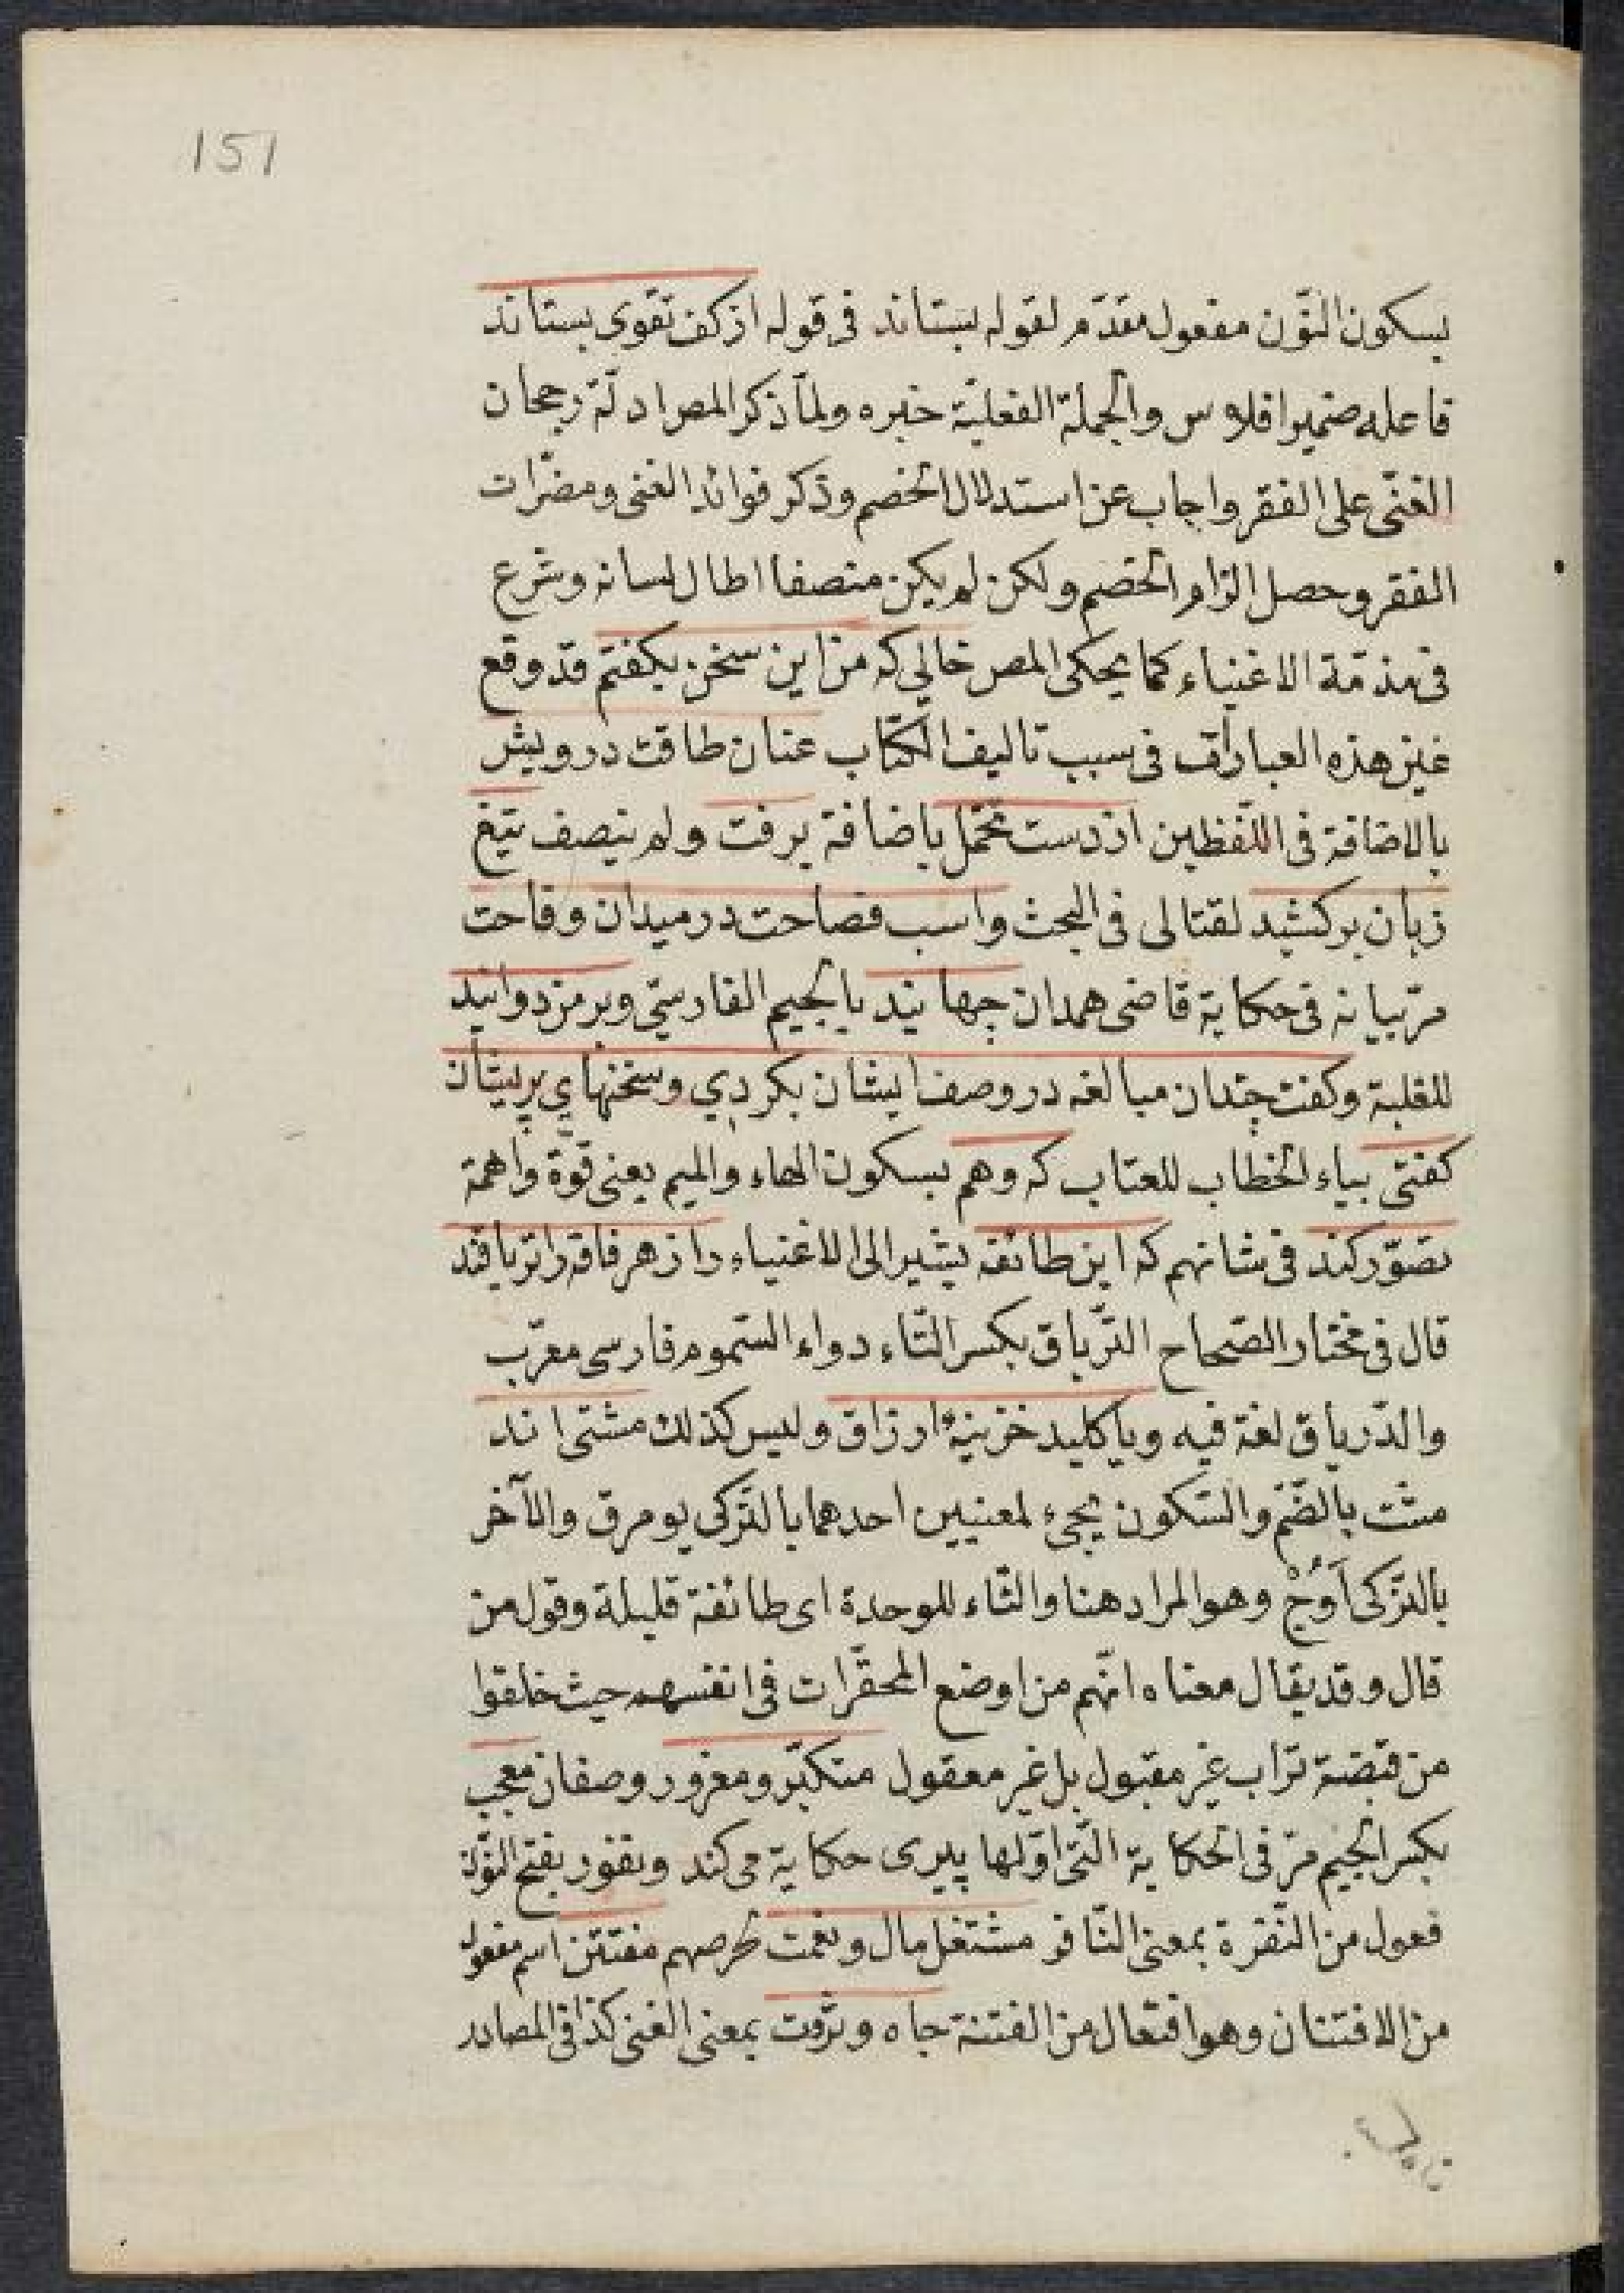 151
بسكون النّون مفعول مقدّم لقوله بستاند فى قوله از كف تقوى بستاند
فاعله ضمير افلاس والجملة الفعليّة خبره ولمّا ذكر المص ادلّة رجحان
الغنّى على الفقر واجاب عن استدلال الخصم وذكر فوائد الغنى ومضرّات
الفقر وحصل الزام الخصم ولكن لم يكن منصفا اطال لسانه وشرع
فى مذمّة الاغنياء كما يحكى المص حالي كه من اين سخن بكفتم قد وقع
عين هذه العبارات فى سبب تاليف الكتاب عنان طاقت درويش
بالاضافة فى اللّفظين از دست تحمّل باضافة برفت ولم ينصف تيغ
زبان بركشيد لقتالى فى البحث واسب فصاحت در ميدان وقاحت
مرّ بيانه فى حكاية قاضى همدان جهانيد بالجيم الفارسيّ وبر من دوانيد
للغلبة وكفت چندان مبالغه در وصف ايشان بكردي وسخنهاي پريشان
كفتى بياء الخطاب للعتاب كه وهم بسكون الهاء والميم يعنى قوّة واهمة
تصوّر كند فى شانهم كه اين طائفه يشير الى الاغنياء را زهر فاقه را ترياقند
قال فى مختار الصّحاح الترّياق بكسر التّاء دواء السّموم فارسى معرّب
والدّرياق لغة فيه ويا كليد خزينهٔ ارزاق وليس كذلك مشتى اند
مشت بالضّم والسّكون يجئ لمعنيين احدهما بالتركى يومرق والآخر
بالتركى اَوُجْ وهو المراد هنا والتّاء للوحدة اى طائفة قليلة وقول من
قال وقد يقال معناه انّهم من اوضع المحقّرات فى انفسهم حيث خلقوا
من قبضة تراب غير مقبول بل غير معقول متكبّر ومغرور وصفان معجب
بكسر الجيم مرّ فى الحكاية الّتى اوّلها پيرى حكاية مى كند ونفور بفتح النّون
فعول من النّفرة بمعنى النّافر مشتغل مال ونعمت لحرصهم مفتتن اسم مفعول
من الافتنان وهو افتعال من الفتنة جاه وثروت بمعنى الغنى كذا فى المصادر